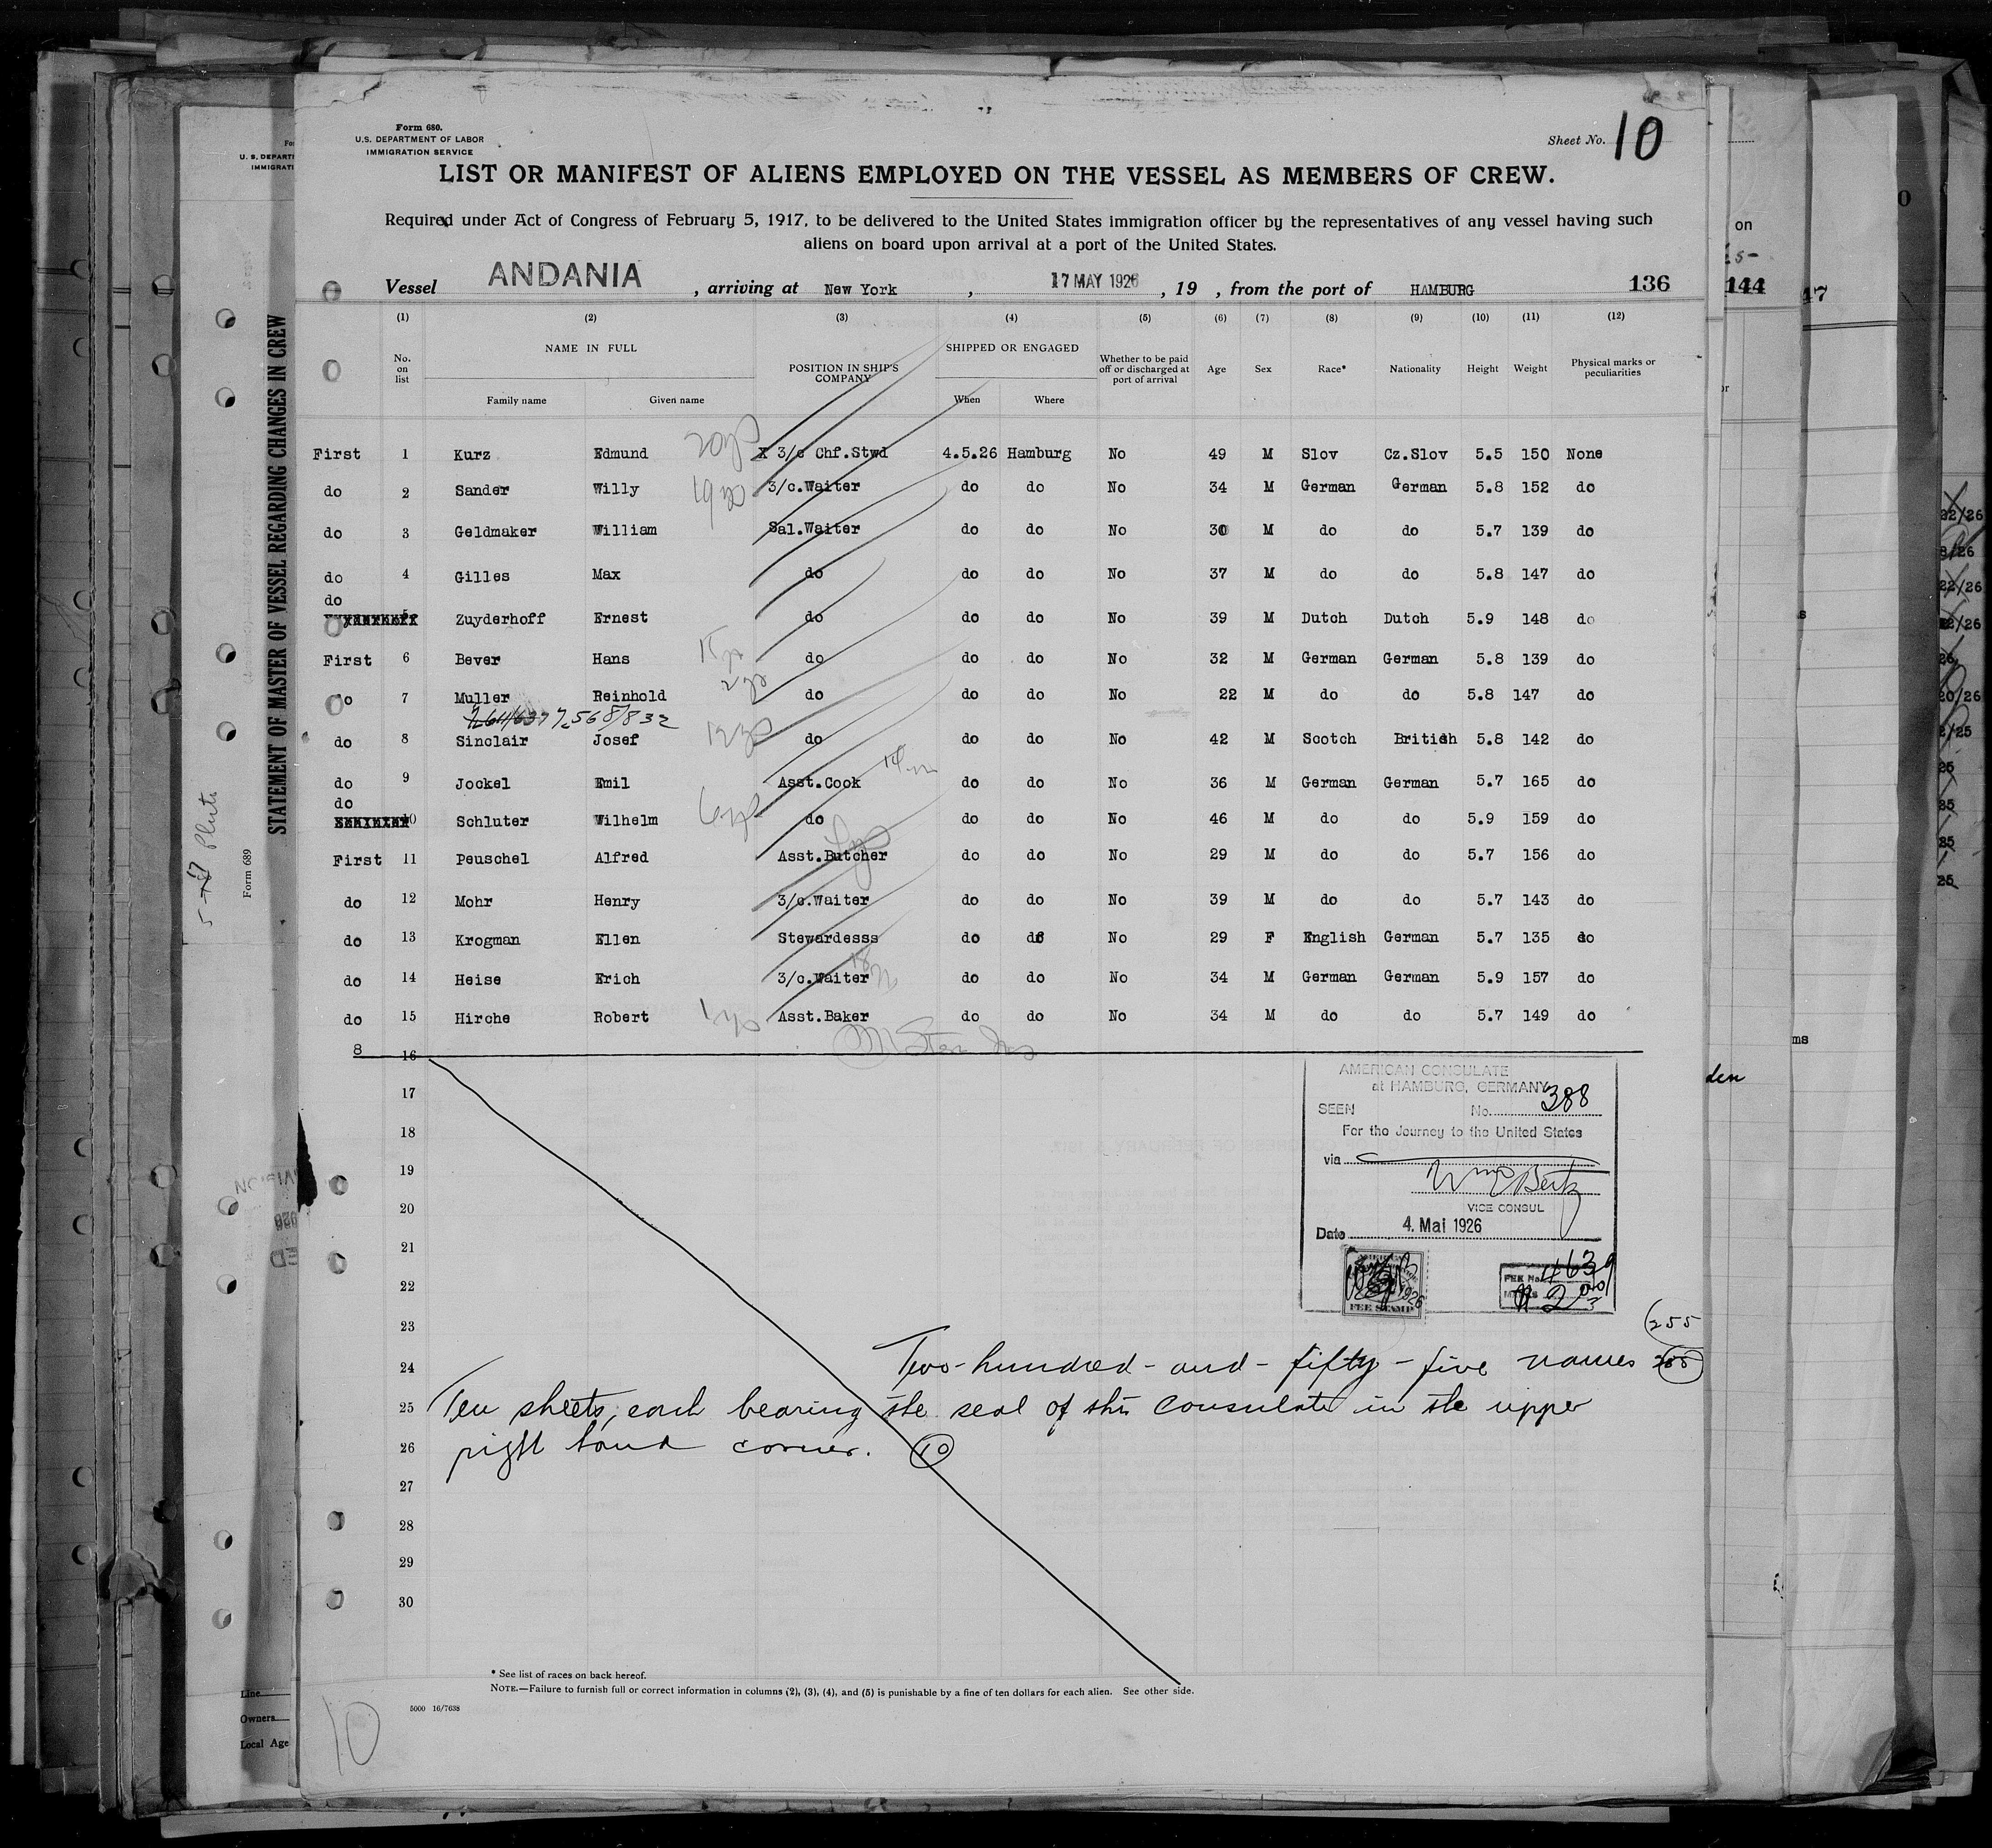 Form 680.
U.S. DEPARTMENT OF LABOR
IMMIGRATION SERVICE
Sheet No. 10
LIST OR MANIFEST OF ALIENS EMPLOYED ON THE VESSEL AS MEMBERS OF CREW.
Required under Act of Congress of February 5, 1917, to be delivered to the United States immigration officer by the representatives of any vessel having such
aliens on board upon arrival at a port of the United States.
Vessel ANDANIA , arriving at New York , 17 MAY 1926 , 19 , from the port of HAMBURG 136
(1) (2) (3) (4) (5) (6) (7) (8) (9) (10) (11) (12)
No. on list NAME IN FULL Family name Given name POSITION IN SHIP'S COMPANY SHIPPED OR ENGAGED When Where Whether to be paid off or discharged at port of arrival Age Sex Race* Nationality Height Weight Physical marks or peculiarities
First 1 Kurz Edmund X 3/c Chf.Stwd 4.5.26 Hamburg No 49 M Slov Cz.Slov 5.5 150 None
do 2 Sander Willy 3/c.Waiter do do No 34 M German German 5.8 152 do
do 3 Geldmaker William Sal.Waiter do do No 30 M do do 5.7 139 do
do 4 Gilles Max do do do No 37 M do do 5.8 147 do
do 5 Zuyderhoff Ernest do do do No 39 M Dutch Dutch 5.9 148 do
First 6 Bever Hans do do do No 32 M German German 5.8 139 do
do 7 Muller Reinhold do do do No 22 M do do 5.8 147 do
do 8 Sinclair Josef do do do No 42 M Scotch British 5.8 142 do
do 9 Jockel Emil Asst.Cook do do No 36 M German German 5.7 165 do
do 10 Schluter Wilhelm do do do No 46 M do do 5.9 159 do
First 11 Peuschel Alfred Asst.Butcher do do No 29 M do do 5.7 156 do
do 12 Mohr Henry 3/c.Waiter do do No 39 M do do 5.7 143 do
do 13 Krogman Ellen Stewardesss do do No 29 F English German 5.7 135 do
do 14 Heise Erich 3/c.Waiter do do No 34 M German German 5.9 157 do
do 15 Hirche Robert Asst.Baker do do No 34 M do do 5.7 149 do
8 16
17
18
19
20
21
22
23
24
25
26
27
28
29
30
AMERICAN CONSULATE
at HAMBURG, GERMANY
SEEN No. 388
For the Journey to the United States
via
VICE CONSUL
Date 4. Mai 1926
FEE STAMP
FEE No. 4639
255
Two-hundred-and-fifty-five names
Ten sheets, each bearing the seal of this consulate in the upper
right hand corner. 10
* See list of races on back hereof.
NOTE.—Failure to furnish full or correct information in columns (2), (3), (4), and (5) is punishable by a fine of ten dollars for each alien. See other side.
5000 16/7638
10
STATEMENT OF MASTER OF VESSEL REGARDING CHANGES IN CREW
Form 689
Line
Owners
Local Age
144